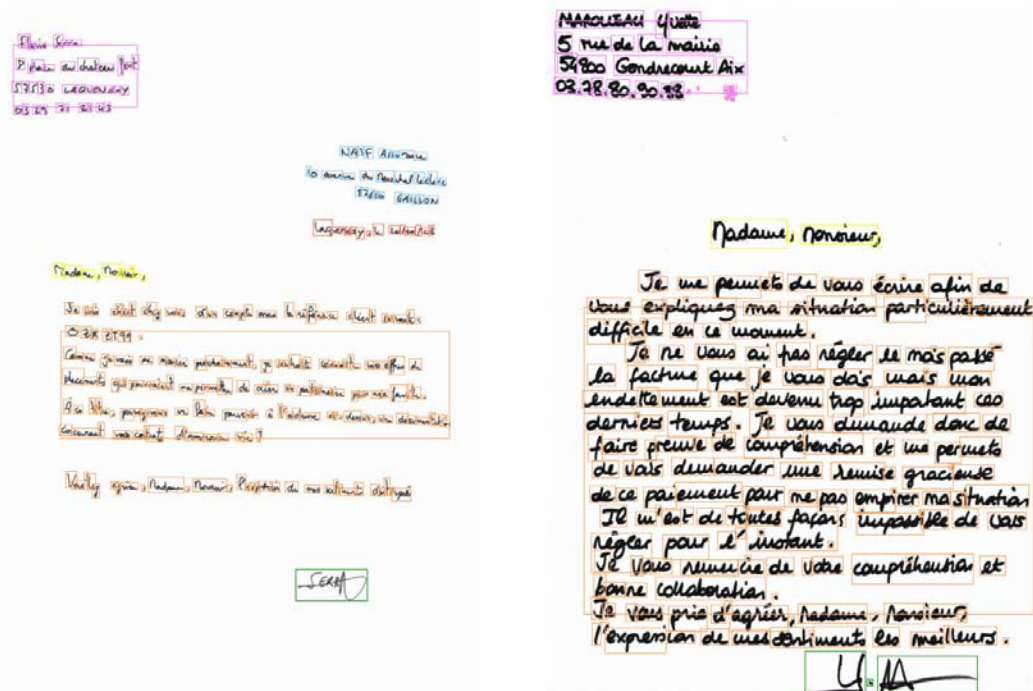 Flavie Serra
place du chateau
57530 LAQUENEXY
NAIF Assurance
10 avenue du Marechal Leclerc
GAILLON
Laquenexy, le
Madame, Monsieur,
Je suis client chez vous d'un compte la référence client suivante
Comme je vais me marier prochainement, je souhaite connaître vos offres de
placements qui pourraient me permettre de créer un patrimoine pour une famille.
A ce titre, pourriez-vous me faire parvenir à l'adresse ci-dessus, un
concernant vos contrat d'assurance vie ?
Veuillez agréer, Madame, Monsieur, l'expression de mes sentiments distingués
SERRA
MAROUZEAU Yvette
5 rue de la mairie
54800 Gondrecourt Aix
03.78.80.90.98.
Madame, Monsieur,
Je me permets de vous écrire afin de
vous expliquez ma situation particulièrement
difficile en ce moment.
Je ne vous ai pas régler le mois passé
la facture que je vous dois mais mon
endettement est devenu trop important ces
derniers temps. Je vous demande donc de
faire preuve de compréhension et me permets
de vous demander une remise gracieuse
de ce paiement pour ne pas empirer ma situation
Il m'est de toutes façons impossible de vous
régler pour l'instant.
Je vous remercie de votre compréhension et
bonne collaboration.
Je vous prie d'agréer, Madame, Monsieur,
l'expression de mes sentiments les meilleurs.